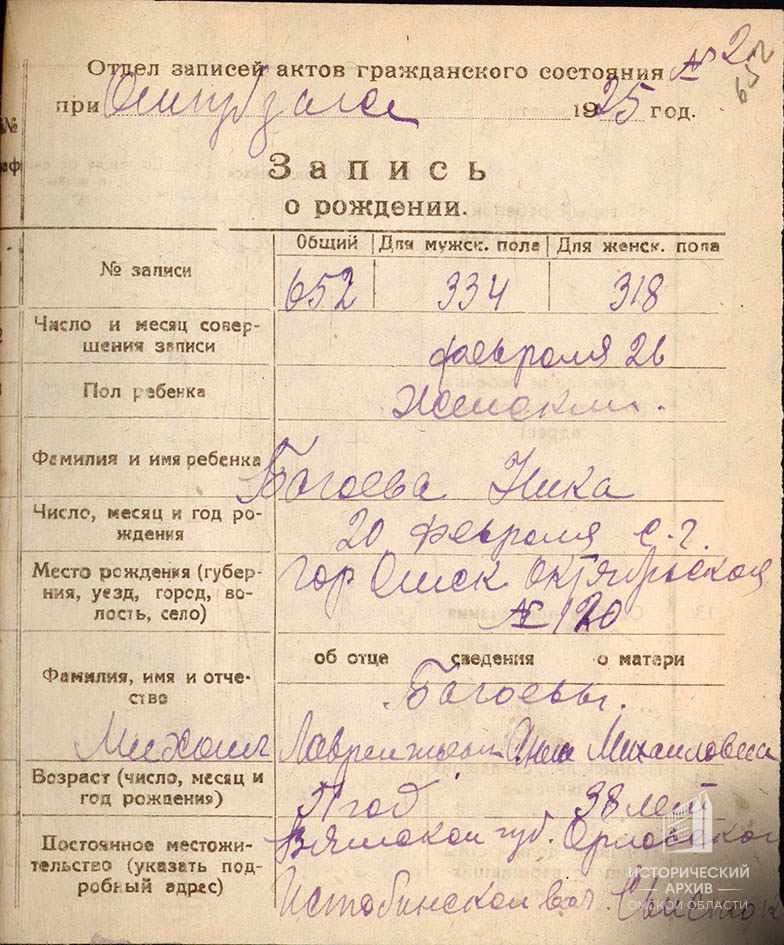 Отдел записей актов гражданского состояния № 2
652
при 1925 год.
Запись
о рождении.
Общий Для мужск. пола Для женск. пола
№ записи 652 334 318
Число и месяц совершения записи
февраля 26
Пол ребенка Женский.
Фамилия и имя ребенка Багоева Ника
Число, месяц и год рождения
20 февраля с.г.
Место рождения (губерния, уезд, город, волость, село)
гор Омск Октябрьская
№ 120
об отце сведения о матери
Фамилия, имя и отчество
Багоевы.
Михаил Лаврентьевич Михайловна
Возраст (число, месяц и год рождения)
51 год 38 лет
Постоянное местожительство (указать подробный адрес)
Вятской губ. Орловского
Истобинской вол.
ИСТОРИЧЕСКИЙ
АРХИВ
ОМСКОЙ ОБЛАСТИ